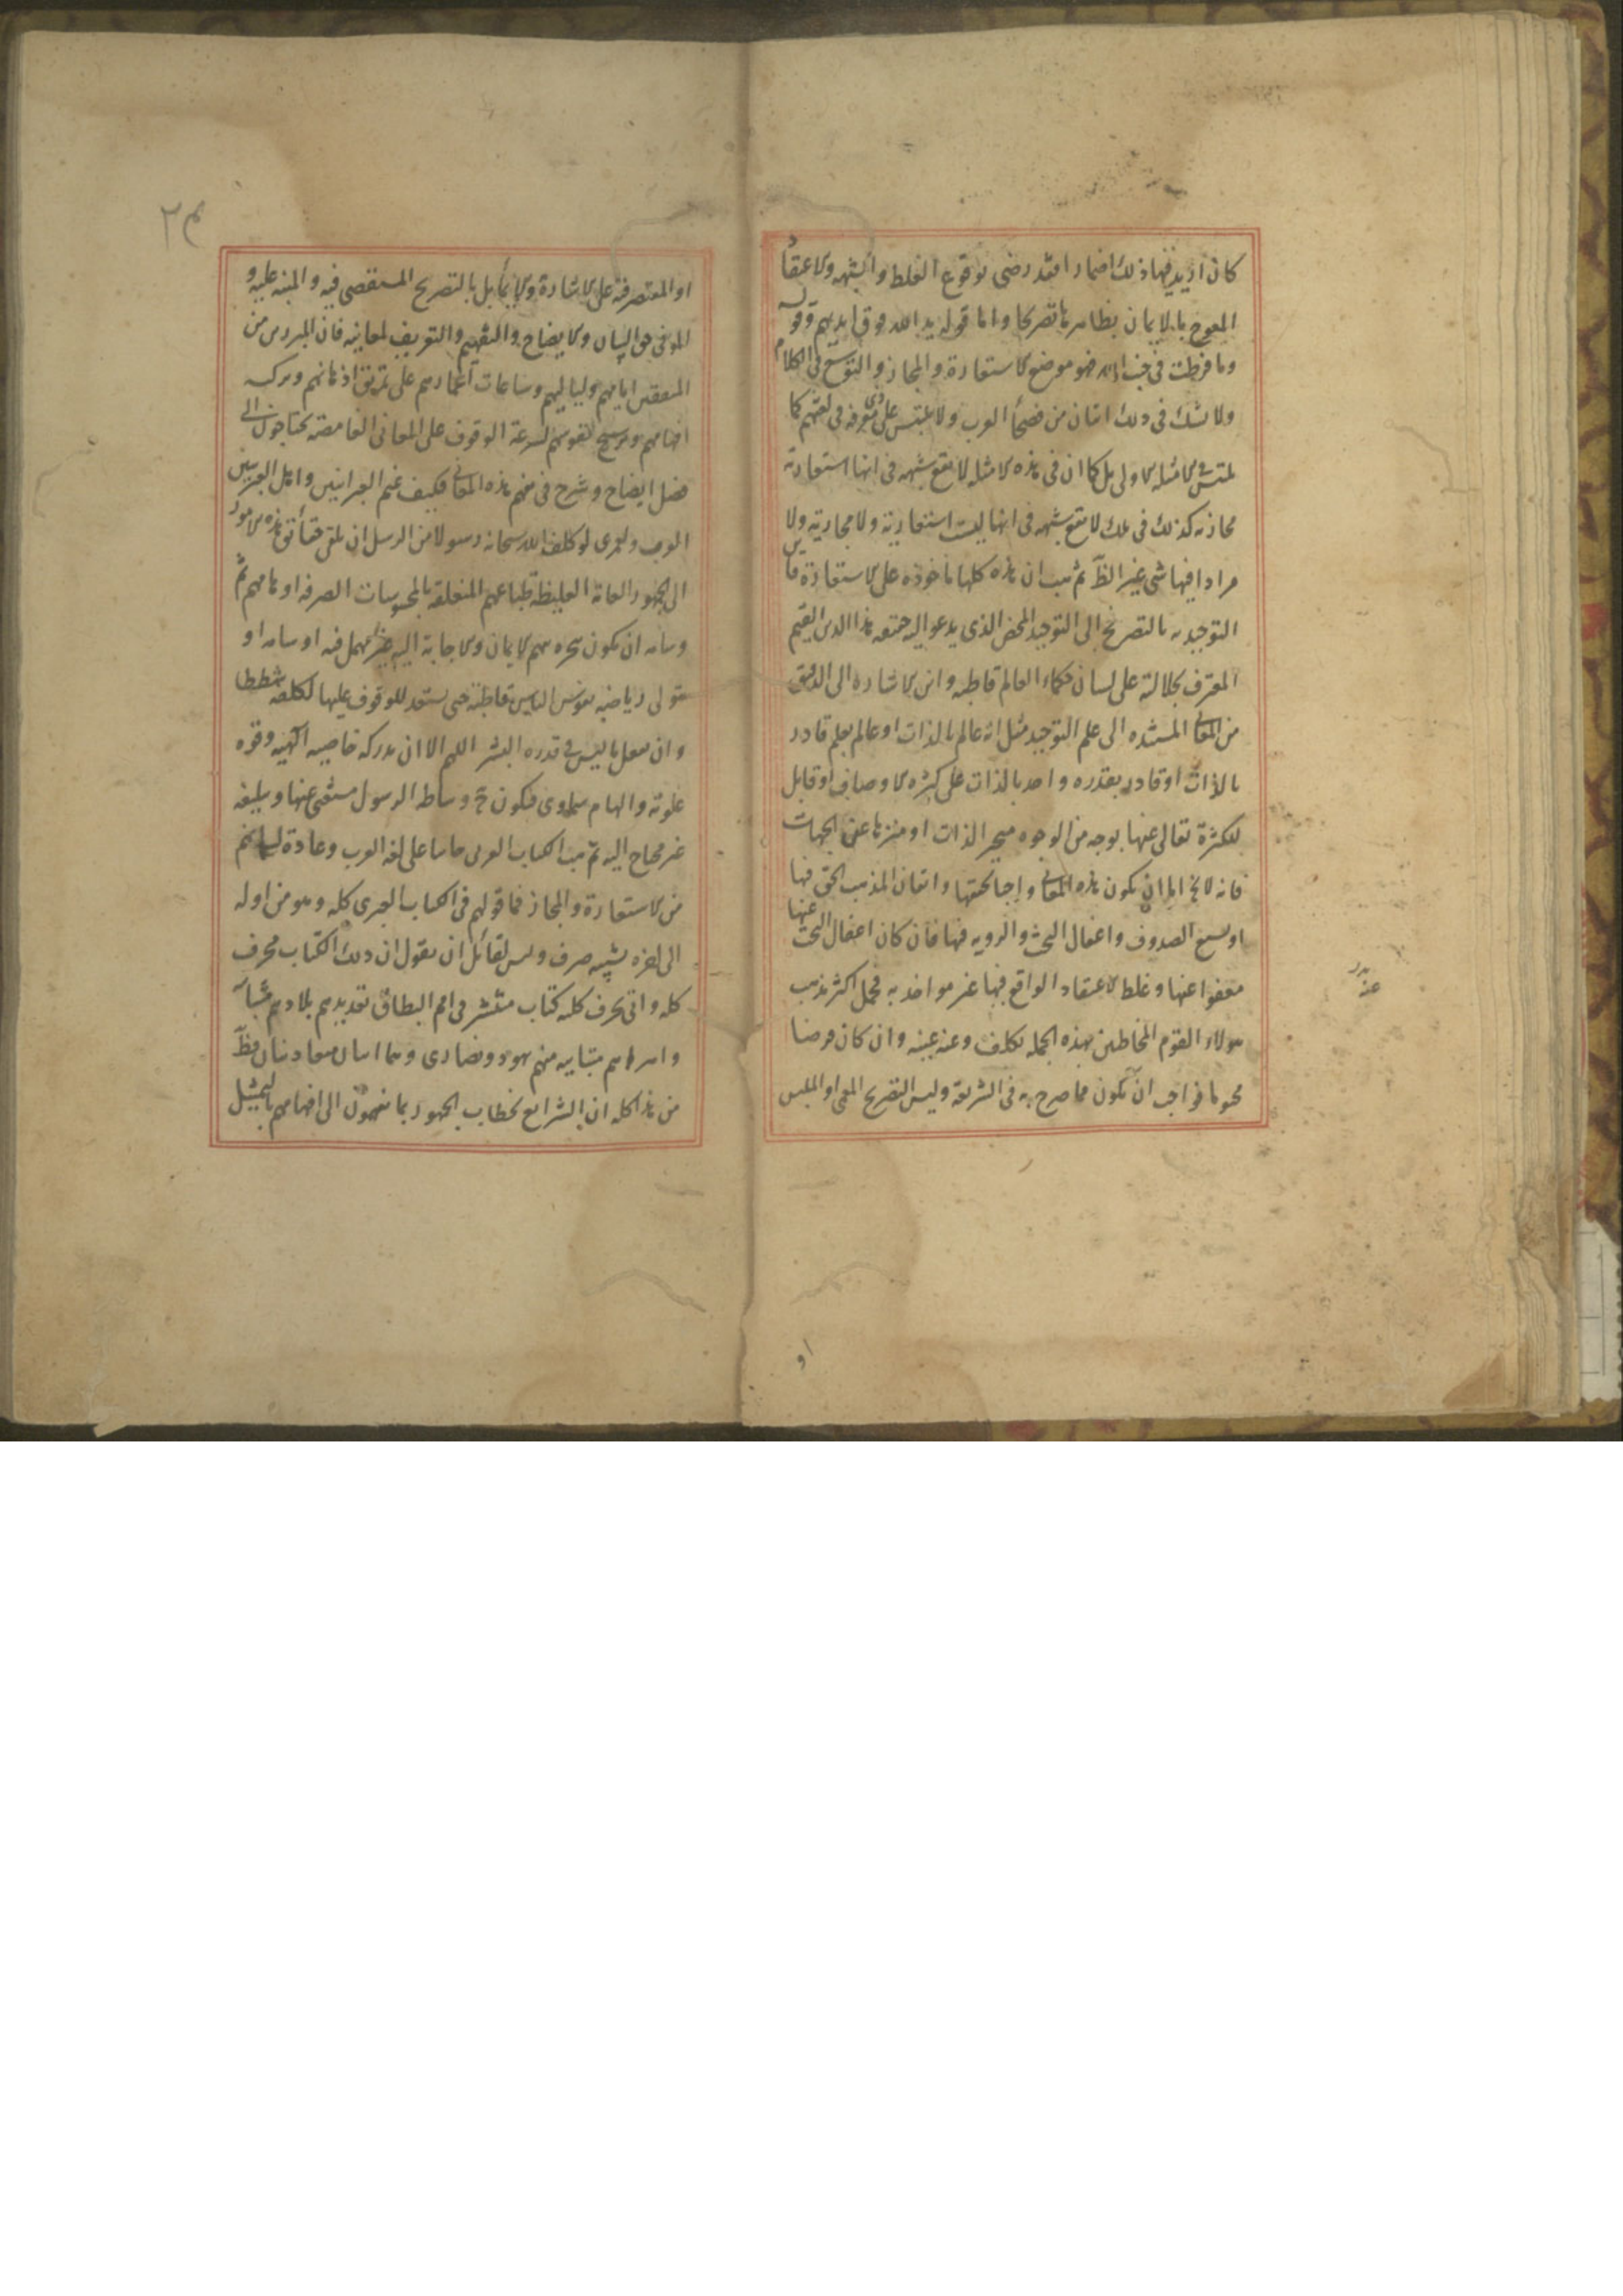 كان اريد فيها ذلك اضمارا فقد رضى بوقوع الغلط والشبهه والاعتقاد
المعوج بالايمان بظاهرها تصريحا واما قوله يد الله فوق ايديهم وقوله
وما فرطت فى جنب الله فهو موضع الاستعارة والمجاز والتوسع فى الكلام
ولا شك فى ذلك اثنان من فصحاء العرب ولا يلتبس على ذى معرفه فى لغتهم كما
يلتبس فى الامثله الاولى بل كما ان فى هذه الامثله لا يقع شبهه فى انها استعارية
مجازيه كذلك فى تلك لا يقع شبهه فى انها ليست استعارية ولا مجازية ولا
مرادا فيها شى غير الظ ثم هب ان هذه كلها ماخوذه على الاستعارة فاين
التوحيد به بالتصريح الى التوحيد المحض الذى يدعو اليه حقيقه هذا الدين القيم
المعترف بجلالته على لسان حكماء العالم قاطبه واين الاشاره الى الدقيق
من المعانى المشيده الى علم التوحيد مثل انه عالم بالذات او عالم بعلم قادر
بالذات او قادر بقدره واحد بالذات على كثره الاوصاف او قابل
لكثرة تعالى عنها بوجه من الوجوه متحيز الذات او منزها عن الجهات
فانه لا يخ اما ان يكون هذه المعانى واجبا تحققها واتقان المذهب الحق فيها
او يسع الصدوف واغفال البحث والرويه فيها فان كان اغفال البحث عنها
معفوا عنها وغلط الاعتقاد الواقع فيها غير مواخذ به فجل اكثر مذهب
هولاء القوم المخاطبين بهذه الجمله تكلف وعنه غنيه وان كان فرضا
محوما فواجب ان يكون مما صرح به فى الشريعة وليس التصريح المعمى او الملبس
او
او المقتصر فيه على الاشارة والايماء بل بالتصريح المستقصى فيه والمنبه عليه و
الموفى حق البيان والايضاح والتفهيم والتعريف لمعانيه فان المبرزين من
المنفقين ايامهم ولياليهم وساعات اعمارهم على تمرين اذهانهم وتزكيه
افهامهم وترسيخ نفوسهم لسرعة الوقوف على المعانى الغامضه يحتاجون الى
فضل ايضاح وشرح فى فهم هذه المعانى فكيف غتم العبرانيين واهل الوبر من
العرب ولعمرى لو كلف الله سبحانه رسولا من الرسل ان يلقى حقائق هذه الامور
الى الجمهور العامة الغليظه طباعهم المتعلقه بالمحسوسات الصرفه اوهامهم ثم
وسامه ان يكون منجزه منهم الايمان والاجابة اليه غير مهمل فيه او سامه او
يتولى رياضه نفوس الناس قاطبة حتى يستعد للوقوف عليها لكلفه شططا
وان يفعل ما ليس فى قدره البشر اللهم الا ان يدركه خاصيه الهيه وقوه
علوية والهام سماوى فيكون ح وساطه الرسول مستغنى عنها وتبليغه
غير محتاج اليه ثم هب الكتاب العربى جاءيا على لغه العرب وعادة لسانهم
من الاستعارة والمجاز فما قولهم فى الكتاب العبرى كله وهو من اوله
الى اخره تشبيه صرف وليس لقائل ان يقول ان ذلك الكتاب محرف
كله وانى يحرف كليه كتاب منتشر فى امم لايطاق تعديدهم بلادهم متنائية
واهواءهم متباينه منهم يهود ونصارى وهما امتان متعاديتان فظ
من هذا كله ان الشرايع لخطاب الجمهور بما يفهمون الى افهامهم بالتمثيل